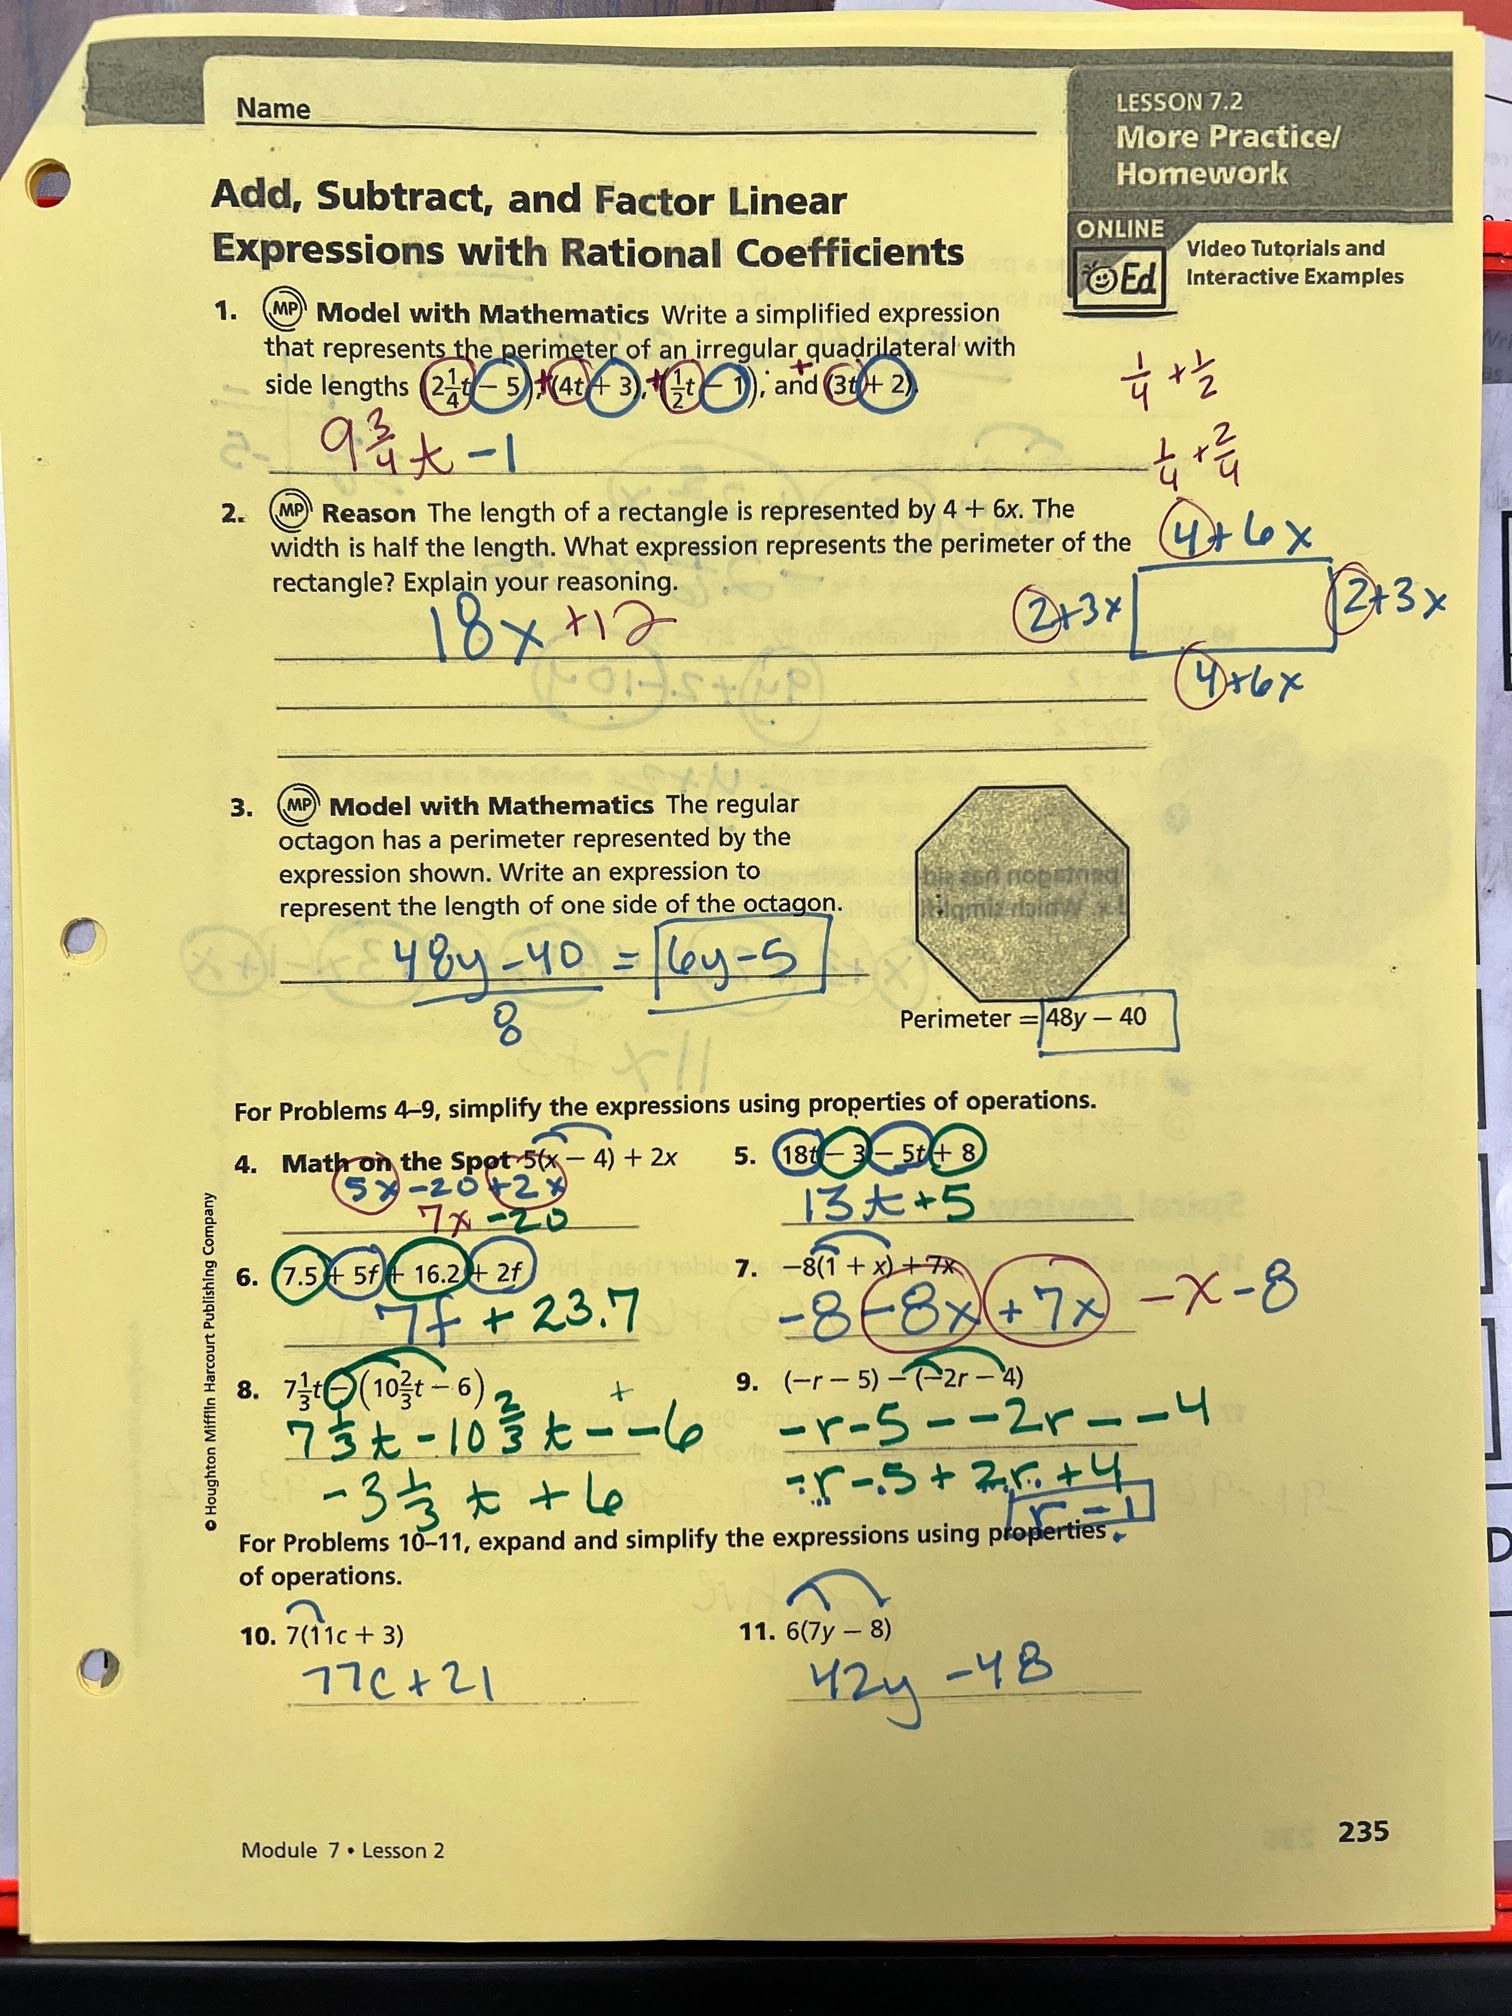 Name
LESSON 7.2
More Practice/
Homework
Add, Subtract, and Factor Linear
Expressions with Rational Coefficients
ONLINE
Ed
Video Tutorials and
Interactive Examples
1. MP Model with Mathematics Write a simplified expression
that represents the perimeter of an irregular quadrilateral with
side lengths (2 1/4 t − 5), + (4t + 3), + (1/2 t − 1), and + (3t + 2).
9 3/4 t − 1
1/4 + 1/2
1/4 + 2/4
2. MP Reason The length of a rectangle is represented by 4 + 6x. The
width is half the length. What expression represents the perimeter of the
rectangle? Explain your reasoning.
18x + 12
4 + 6x
2 + 3x
2 + 3x
4 + 6x
3. MP Model with Mathematics The regular
octagon has a perimeter represented by the
expression shown. Write an expression to
represent the length of one side of the octagon.
48y − 40 = 6y − 5
8
Perimeter = 48y − 40
For Problems 4–9, simplify the expressions using properties of operations.
4. Math on the Spot 5(x − 4) + 2x
5x − 20 + 2x
7x − 20
5. 18t − 3 − 5t + 8
13t + 5
6. 7.5 + 5f + 16.2 + 2f
7f + 23.7
7. −8(1 + x) + 7x
−8 − 8x + 7x − x − 8
8. 7 1/3 t − (10 2/3 t − 6)
+
7 1/3 t − 10 2/3 t − − 6
− 3 1/3 t + 6
9. (−r − 5) − (−2r − 4)
−r − 5 − − 2r − − 4
−r − 5 + 2r + 4
r − 1
For Problems 10–11, expand and simplify the expressions using properties
of operations.
10. 7(11c + 3)
77c + 21
11. 6(7y − 8)
42y − 48
© Houghton Mifflin Harcourt Publishing Company
Module 7 • Lesson 2
235